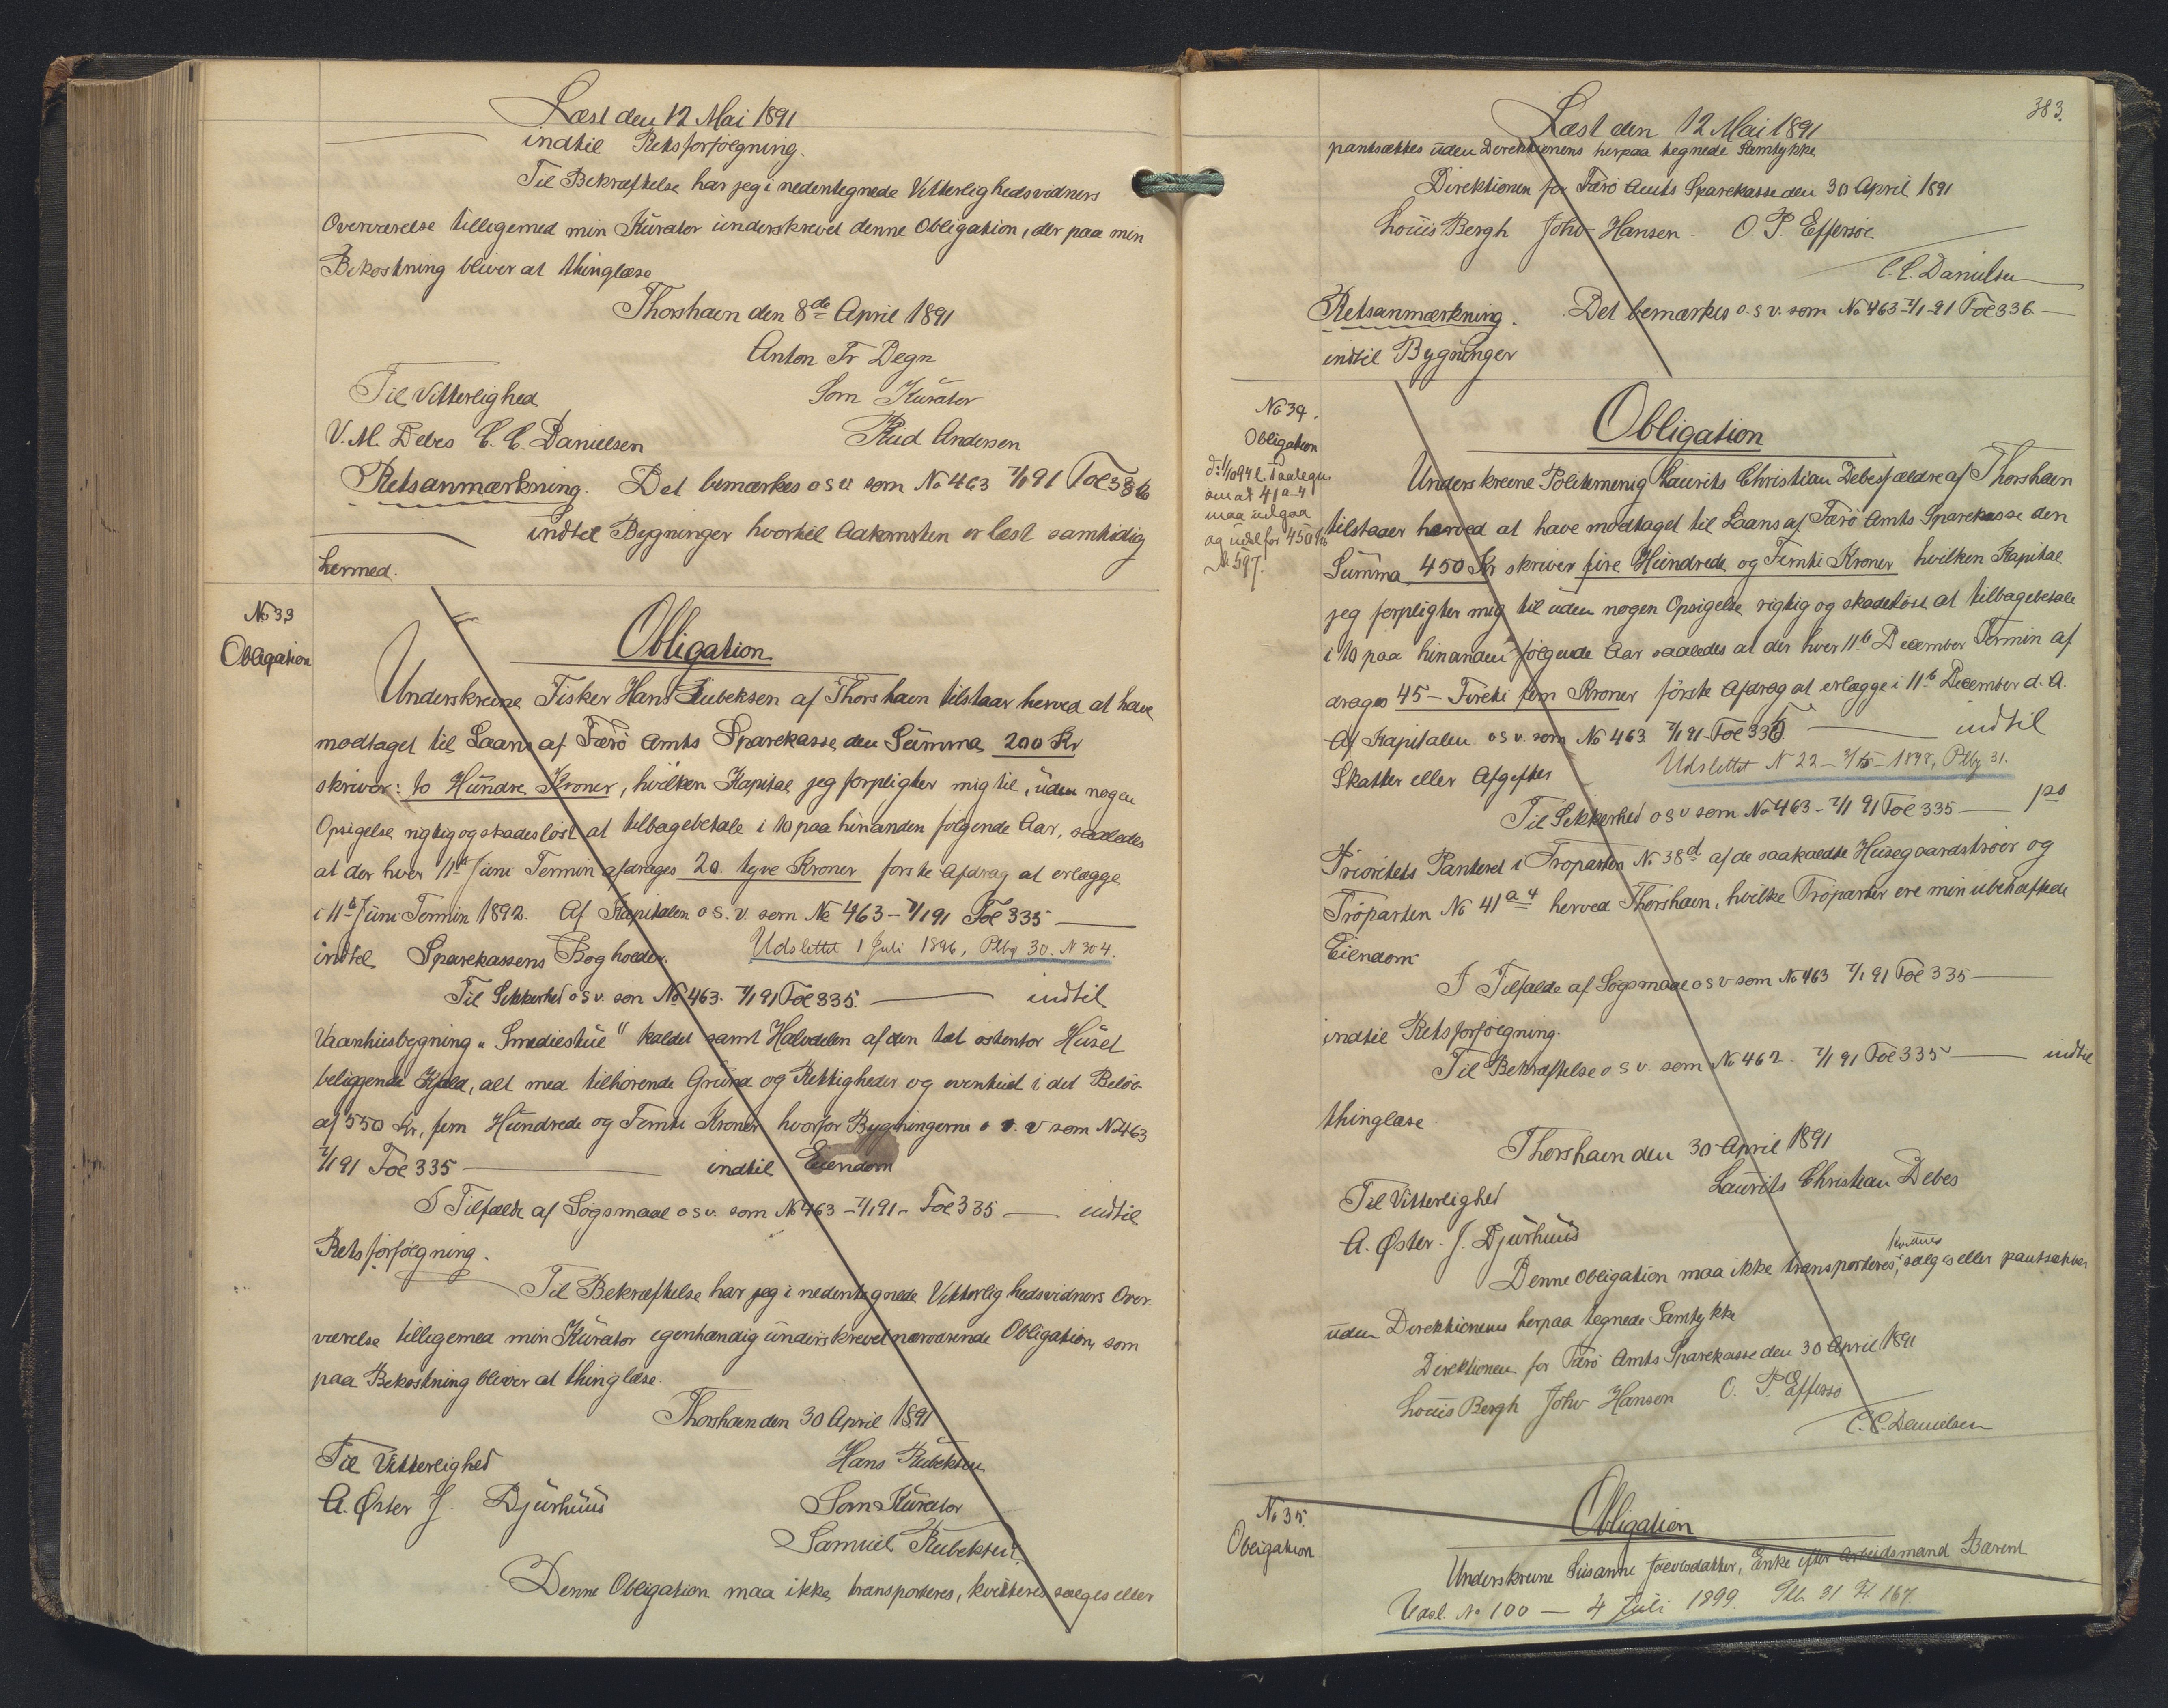 Læst den 12 Mai 1891
indtil Retsforfølgning.
Til Bekræftelse har jeg i nedentegnede Vitterlighedsvidners
Overværelse tilligemed min Kurator underskrevet denne Obligation, der paa min
Bekostning bliver at thinglæse
Thorshavn den 8de April 1891
Anton Fr Degn
Til Vitterlighed
Som Kurator
V. M. Debes C. C. Danielsen
Rud Andersen
Retsanmærkning. Det bemærkes o s v som No 463 7/1 91 Fol 336
indtil Bygninger hvortil Adkomsten er læst samtidig
hermed.
No 33
Obligation
Obligation
Underskrevne Fisker Hans Rubeksen af Thorshavn tilstaar herved at have
modtaget til Laans af Færø Amts Sparekasse den Summa 200 Kr
skriver: to Hundre Kroner, hvilken Kapital jeg forpligter mig til, uden nogen
Opsigelse rigtig og skadesløst at tilbagebetale i 10 paa hinanden følgende Aar, saaledes
at der hver 11te Juni Termin afdrages 20. tyve Kroner første Afdrag at erlægge
i 11te Juni Termin 1892. Af Kapitalen o s. v. som No 463 - 7/1 91 Fol 335
indtil Sparekassens Bogholder. Udslettet 1 Juli 1896, Pbg 30. N 304.
Til Sikkerhed o s v. som No 463. 7/1 91 Fol 335. indtil
Vaanhusbygning "Smediestue" kaldet samt Halvdelen af den tæt østenfor Huset
beliggende Kjeld, alt med tilhørende Grund og Rettigheder og eventuel i det Beløb
af 550 Kr, fem Hundrede og Femti Kroner hvorfor Bygningerne o s. v som No 463
7/1 91 Fol 335 indtil Eiendom
I Tilfælde af Søgsmaal o s v. som No 463 - 7/1 91 - Fol 335 indtil
Retsforfølgning.
Til Bekræftelse har jeg i nedentegnede Vitterlighedsvidners Over-
værelse tilligemed min Kurator egenhændig underskrevet nærværende Obligation, som
paa Bekostning bliver at thinglæse.
Thorshavn den 30 April 1891
Til Vitterlighed
Hans Rubeksen
A. Øster J. Djurhuus
Som Kurator
Samuel Rubeksen
Denne Obligation maa ikke transporteres, kvitteres sælges eller
383.
Læst den 12 Mai 1891
pantsættes uden Direktionens herpaa tegnede Samtykke
Direktionen for Færø Amts Sparekasse den 30 April 1891
Louis Bergh Johv Hansen. O. P. Effersøe
C. C. Danielsen
Retsanmærkning. Det bemærkes o. s v. som No 463 - 7/1 - 91 Fol 336.
indtil Bygninger
No 34.
Obligation
om at 41 a-4
maa udgaa
og udsl for 450 Kr
No 597.
Obligation
Underskrevne Politimenig Laurits Christian Debes fældre af Thorshavn
tilstaaer herved at have modtaget til Laans af Færø Amts Sparekasse den
Summa 450 Kr skriver fire Hundrede og Femti Kroner hvilken Kapital
jeg forpligter mig til uden nogen Opsigelse rigtig og skadesløst at tilbagebetale
i 10 paa hinanden følgende Aar saaledes at der hver 11te December Termin af
drages 45 - Fireti fem Kroner første Afdrag at erlægge i 11te December d. A.
Af Kapitalen o s v. som No 463 7/1 91 Fol 335 indtil
Skatter eller Afgifter Udslettet N 22 - 3/5 - 1898, Pbg 31.
Til Sikkerhed o s v som No 463 - 7/1 91 Fol 335 - 1ste
Prioritets Panteret i Troparten No 38d af de saakaldte Husegaardstrøer og
Trøparten No 41 a 4 herved Thorshavn, hvilke Trøparter ere min ubehæftede
Eiendom
I Tilfælde af Søgsmaal o s v som No 463 7/1 91 Fol 335
indtil Retsforfølgning.
Til Bekræftelse o s v. som No 462 7/1 91 Fol 335 indtil
thinglæse.
Thorshavn den 30 April 1891
Til Vitterlighed
Laurits Christian Debes
A. Øster. J. Djurhuus
Denne Obligation maa ikke transporteres, kvitteres sælges eller pantsættes
uden Direktionens herpaa tegnede Samtykke
Direktionen for Færø Amts Sparekasse den 30 April 1891
Louis Bergh Johv Hansen O. P. Effersø
C. C. Danielsen
No 35.
Obligation
Obligation
Underskrevne Susanne Joensdatter, Enke efter Arbeidsmand Barent
Udsl. No 100 - 4 Juli 1899. Pb. 31 Fl. 167.